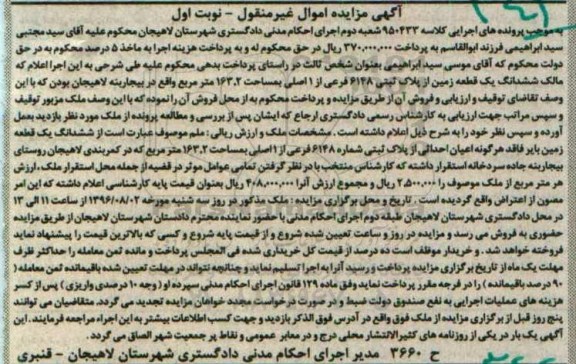 آگهی مزایده اموال غیرمنقول - نوبت اول
به موجب پرونده های اجرایی کلاسه ۹۵۰۴۳۳ شعبه دوم اجرای احکام مدنی دادگستری شهرستان لاهیجان محکوم علیه آقای سید مجتبی
سید ابراهیمی فرزند ابوالقاسم به پرداخت ۳۷۰,۰۰۰,۰۰۰ ریال در حق محکوم له و به پرداخت هزینه اجرا به ماخذ ۵ درصد محکوم به در حق
دولت محکوم که آقای موسی سید ابراهیمی بعنوان شخص ثالث در راستای پرداخت بدهی محکوم علیه طی شرحی به این اجرا اعلام که
مالک ششدانگ یک قطعه زمین از پلاک ثبتی ۶۱۴۸ فرعی از ۱ اصلی بمساحت ۱۶۳.۲ متر مربع واقع در بیجاربنه لاهیجان بودن که با این
وصف تقاضای توقیف و ارزیابی و فروش آن از طریق مزایده و پرداخت محکوم به از محل فروش آن را نموده که با این وصف ملک مزبور توقیف
و سپس مراتب جهت ارزیابی به کارشناس رسمی دادگستری ارجاع که ایشان پس از بررسی و مطالعه پرونده از ملک مورد نظر بازدید بعمل
آورده و سپس نظر خود را به شرح ذیل اعلام داشته است . مشخصات ملک و ارزش ریالی : ملم موصوف عبارت است از ششدانگ یک قطعه
زمین بایر فاقد هرگونه اعیان احداثی از پلاک ثبتی شماره ۶۱۴۸ فرعی از ۱ اصلی بمساحت ۱۶۳.۲ متر مربع که در کمربندی لاهیجان روستای
بیجاربنه جاده سردخانه استقرار داشته که کارشناس منتخب با در نظر گرفتن تمامی عوامل موثر در قضیه از جمله محل استقرار ملک ، ارزش
هر متر مربع از ملک موصوف را ۲,۵۰۰,۰۰۰ ریال و مجموع ارزش آنرا ۴۰۸,۰۰۰,۰۰۰ ریال بعنوان قیمت پایه کارشناسی اعلام داشته که این امر
مصون از اعتراض واقع گردیده است . تاریخ و محل برگزاری مزایده : ملک مذکور در روز سه شنبه مورخه ۱۳۹۶/۰۸/۰۲ از ساعت ۱۱ الی ۱۳
در محل دادگستری شهرستان لاهیجان طبقه دوم اجرای احکام مدنی با حضور نماینده محترم دادستان شهرستان لاهیجان از طریق مزایده
حضوری به فروش می رسد و مزایده در روز و ساعت تعیین شده شروع و از قیمت پایه شروع و کسی که بالاترین قیمت را پیشنهاد نماید
فروخته خواهد شد . و خریدار موظف است ده درصد از قیمت کل خریداری شده فی المجلس پرداخت و مانده ثمن معامله را حداکثر ظرف
مهلت یک ماه از تاریخ برگزاری مزایده پرداخت و رسید آنرا به اجرا تسلیم نماید و چنانچه نتواند در مهلت تعیین شده باقیمانده ثمن معامله (
۹۰ درصد باقیمانده ) را در فرجه مقرر پرداخت نماید وفق ماده ۱۲۹ قانون اجرای احکام مدنی سپرده او ( وجه ۱۰ درصدی واریزی ) پس از کسر
هزینه های عملیات اجرایی به نفع صندوق دولت ضبط و در صورت درخواست مجدد خواهان مزایده تجدید می گردد . متقاضیان می توانند
پنج روز قبل از برگزاری مزایده از ملک فوق واقع در آدرس فوق الذکر بازدید و جهت کسب اطلاعات بیشتر به این اجراء مراجعه فرمایند . این
آگهی یک بار در یکی از روزنامه های کثیرالانتشار محلی درج و در معابر عمومی و نقاط پر جمعیت شهر الصاق می گردد .
ح ۳۶۶۰ مدیر اجرای احکام مدنی دادگستری شهرستان لاهیجان - قنبری